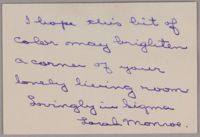 I hope this bit of
color may brighten
a corner of your
lovely living room
Lovingly in Sigma
Sarah Monroe.